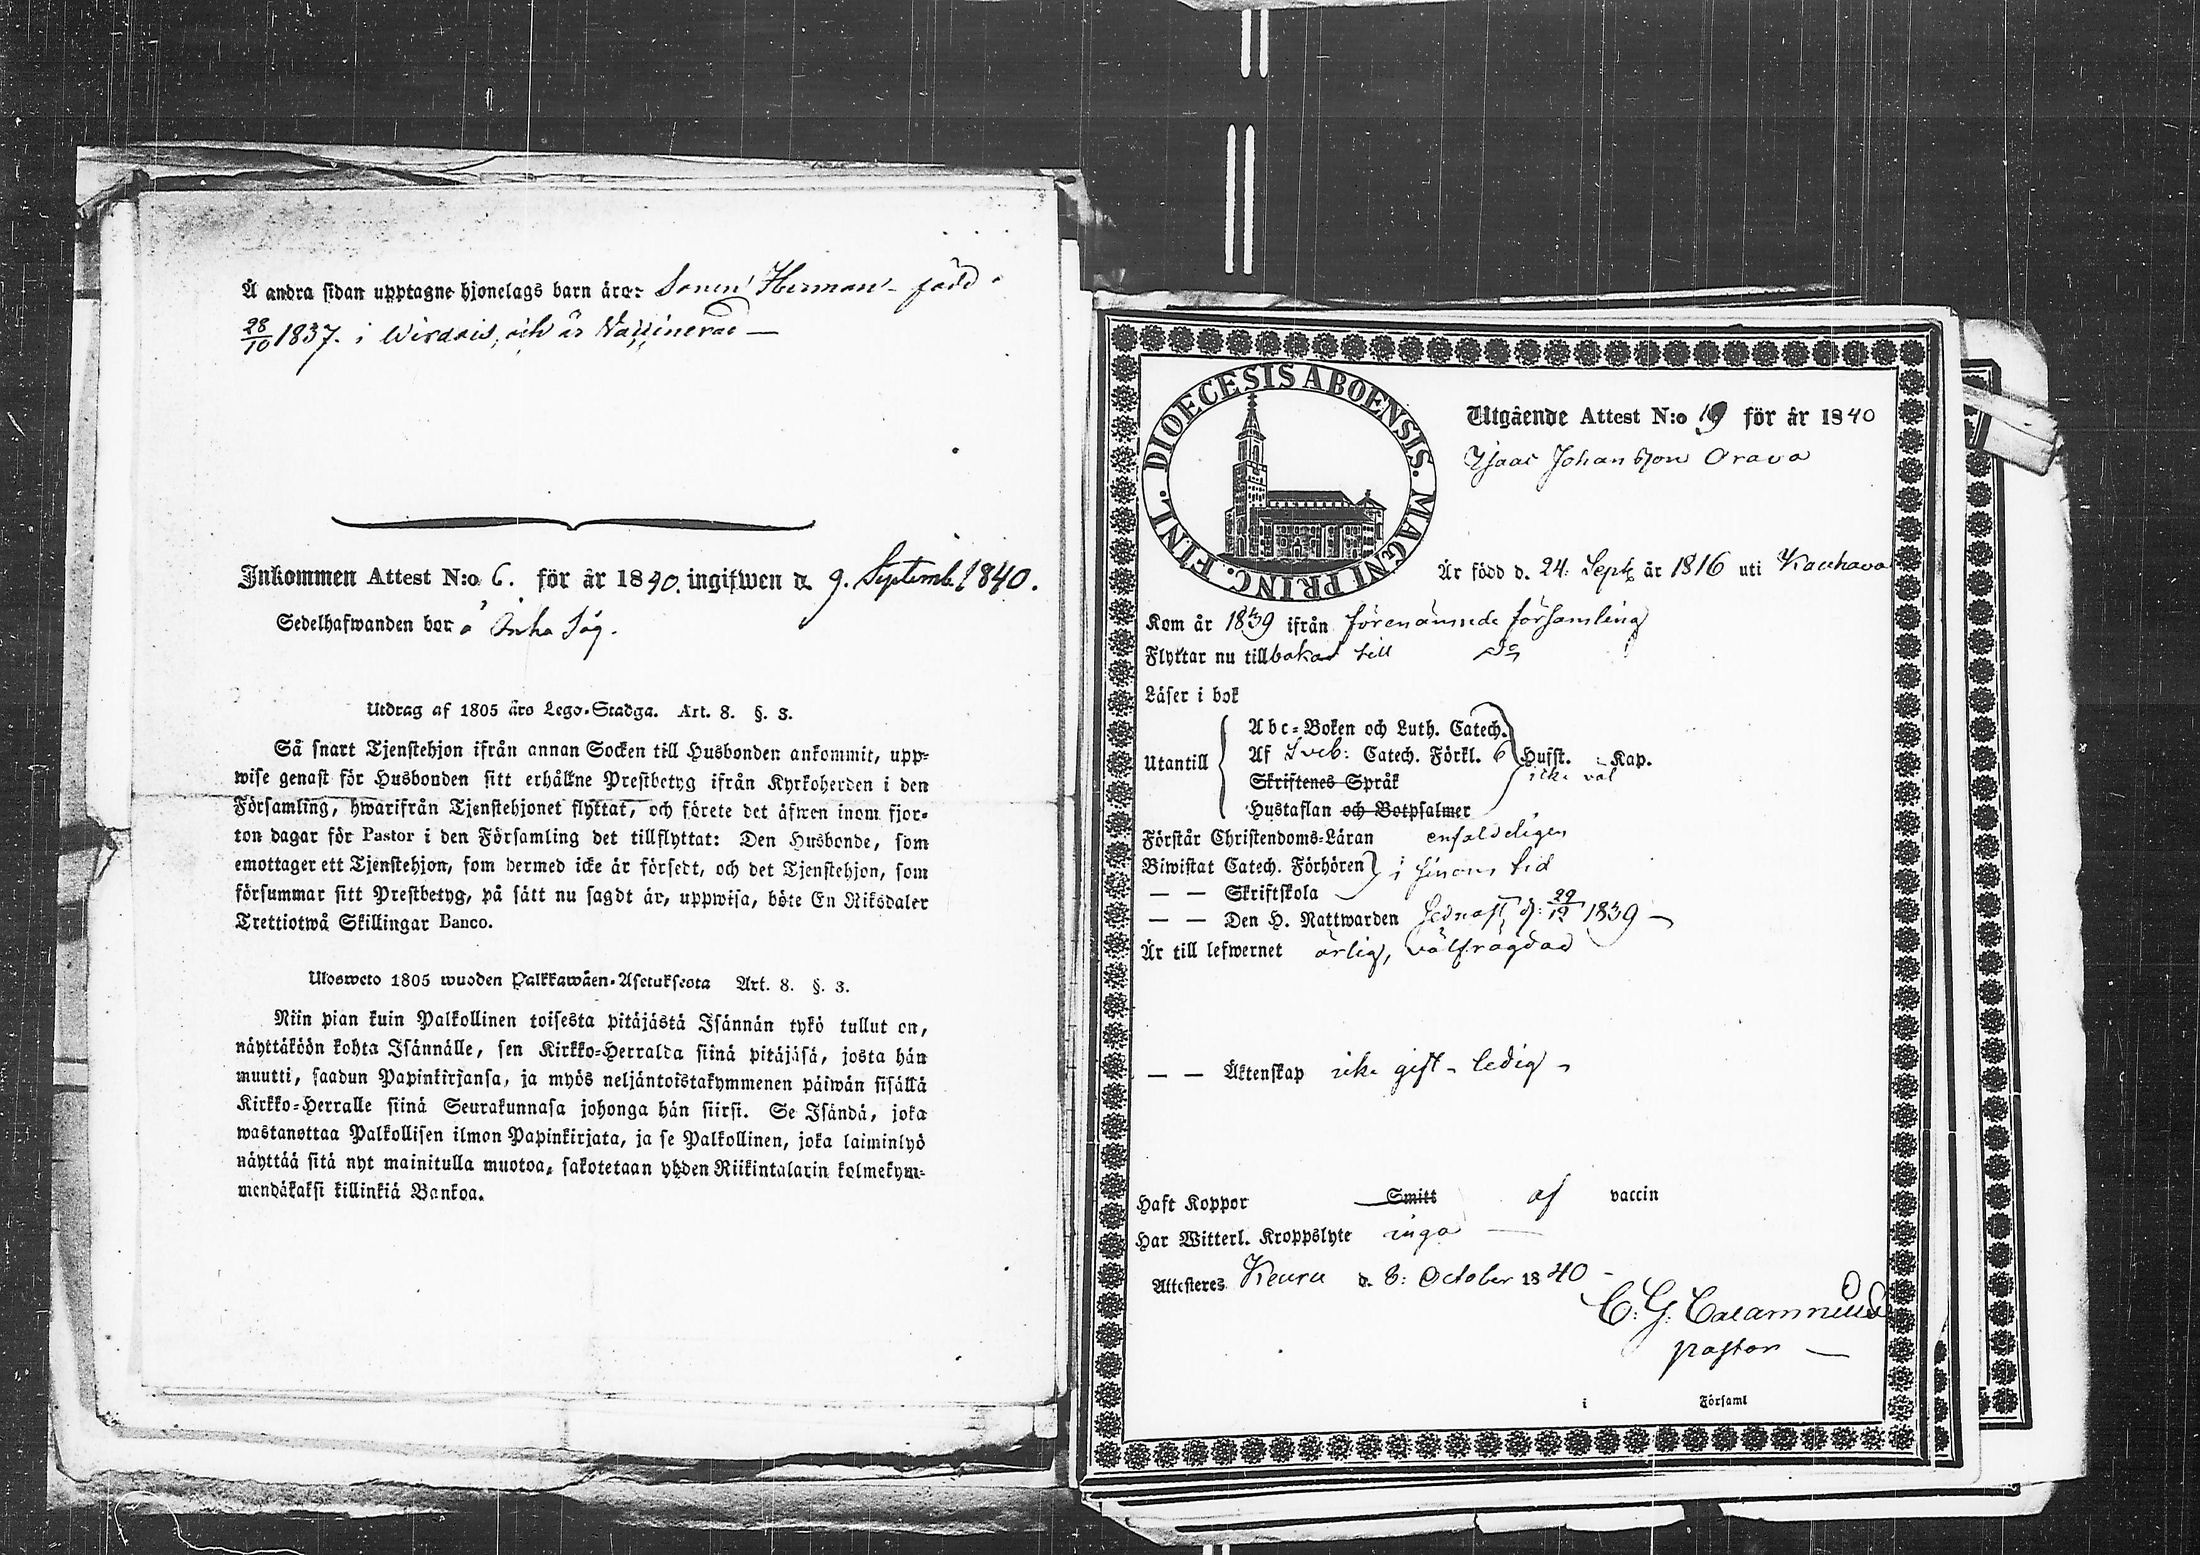 Å andra sidan upptagne hjonelags barn äro: Sonen Herman född
28/10 1837. i Wirdois, och är Vaccinerad —
Inkommen Attest N:o 6. för år 1840. ingifwen d. 9. Septemb. 1840.
Sedelhafwanden bor å Inha Såg.
Utdrag af 1805 års Lego-Stadga. Art. 8. §. 3.
Så snart Tjenstehjon ifrån annan Socken till Husbonden ankommit, upp-
wise genast för Husbonden sitt erhållne Prestbetyg ifrån Kyrkoherden i den
Församling, hwarifrån Tjenstehjonet flyttat, och förete det äfwen inom fjor-
ton dagar för Pastor i den Församling det tillflyttat: Den Husbonde, som
emottager ett Tjenstehjon, som dermed icke är försedt, och det Tjenstehjon, som
försummar sitt Prestbetyg, på sätt nu sagdt är, uppwisa, böte En Riksdaler
Trettiotwå Skillingar Banco.
Ulosweto 1805 wuoden Palkkawäen-Asetuksesta Art. 8. §. 3.
Niin pian kuin Palkollinen toisesta pitäjästä Isännän tykö tullut on,
näyttäköön kohta Isännälle, sen Kirkko-Herralda siinä pitäjäsä, josta hän
muutti, saadun Papinkirjansa, ja myös neljäntoistakymmenen päiwän sisällä
Kirkko-Herralle siinä Seurakunnasa johonga hän siirsi. Se Isändä, joka
wastanottaa Palkollisen ilman Papinkirjata, ja se Palkollinen, joka laiminlyö
näyttää sitä nyt mainitulla muotoa, sakotetaan yhden Riikintalarin kolmekym-
mendäkaksi killinkiä Bankoa.
DIOECESIS ABOENSIS. MAGNI PRINC. FINL.
Utgående Attest N:o 19 för år 1840
Isaac Johansson Orava
Är född d. 24: Sept. år 1816 uti Kauhava
Kom år 1839 ifrån förenämnde församling
Flyttar nu tillbaka till do
Läser i bok
Utantill
Abc-Boken och Luth. Catech.
Af Sveb: Catech. Förkl. 6 Hufst. Kap.
icke väl
Skriftenes Språk
Hustaflan och Botpsalmer
Förstår Christendoms-Läran enfaldeligen
Biwistat Catech. Förhören i sinom tid
— — Skriftskola
— — Den H. Nattwarden sednast d: 29/12 1839 —
Är till lefwernet ärlig, välfrägdad
— — Äktenskap icke gift - ledig -
Haft Koppor Smitt af vaccin
Har Witterl. Kroppslyte inga —
Attesteres Keuru d. 8: October 1840 -
C: G: Calamnius
pastor —
i Församl